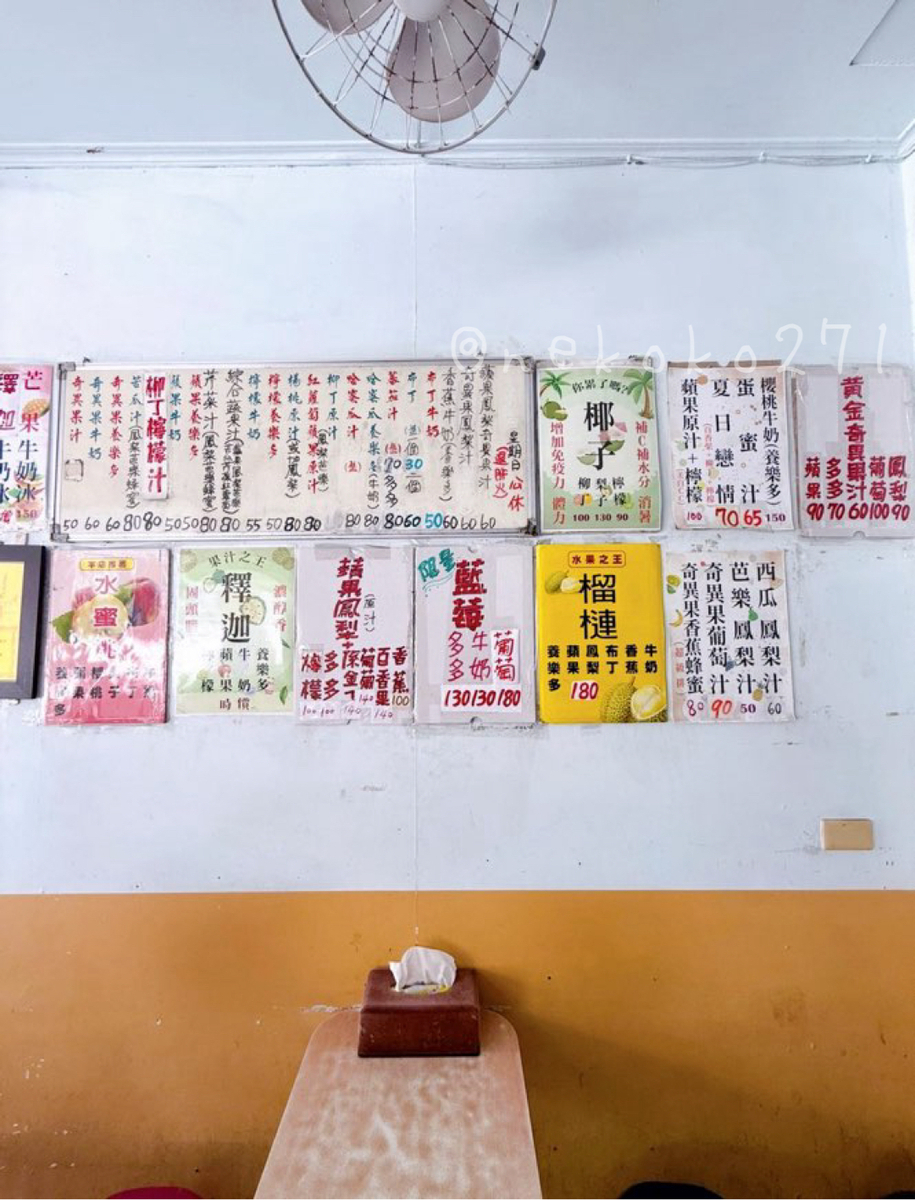 @nekoko271
芒果牛奶冰
150
蘋果鳳梨奇異果汁
奇異果鳳梨汁
香蕉牛奶(養樂多)
布丁牛奶
布丁(進一個) 30
蕃茄汁
哈蜜瓜養樂多(牛奶)
哈蜜瓜汁
紅蘿蔔蘋果原汁
柳丁原汁
楊桃原汁(或鳳梨)
檸檬養樂多
檸檬牛奶
綜合蔬果汁
芹菜汁
蘋果養樂多
蘋果牛奶
柳丁檸檬汁
苦瓜汁(鳳梨苦瓜蜂蜜)
奇異果養樂多
奇異果牛奶
奇異果汁
星期日公休
50 60 60 80 80 50 50 80 80 55 50 80 80 80 80 80 60 50 60 60 60
你累了嗎?
椰子
補C補水分 消暑
增加免疫力 體力
柳丁 梨子 檸檬
100 130 90
櫻桃牛奶(養樂多) 150
蛋蜜汁 65
夏日戀情 70
蘋果原汁+檸檬 100
黃金奇異果汁 60
鳳梨 90
葡萄 100
多多 70
蘋果 90
水蜜桃
果汁之王
釋迦
養樂多
牛奶
蘋果
檸檬
時價
蘋果鳳梨+(原汁)
香蕉 100
百香果 140
葡萄 140
多多 100
檸檬 100
限量
藍莓
葡萄 180
牛奶 130
多多 130
水果之王
榴槤
牛奶
香蕉
布丁
鳳梨
蘋果
養樂多
180
西瓜鳳梨汁 60
芭樂鳳梨汁 50
奇異果葡萄汁 90
奇異果香蕉蜂蜜 80